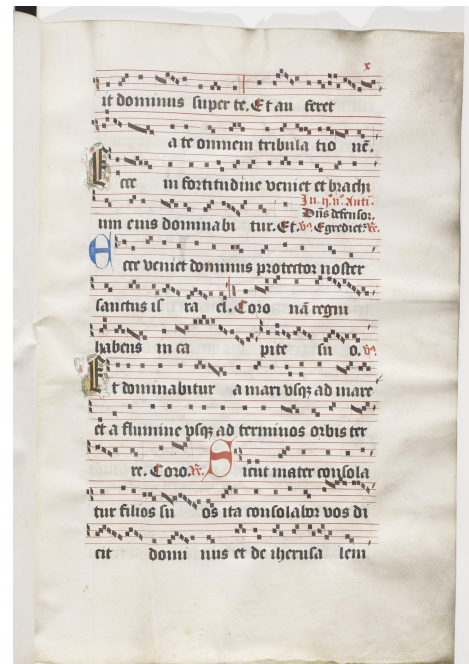 x
it dominus super te. Et au feret
a te omnem tribula tio nē.
Ecce in fortitudine veniet et brachi
Dn̄s defensor.
um eius dominabi tur. Et. Egrediet᷑
Ecce veniet dominus protector noster
sanctus is ra el. Coro nā regni
habens in ca pite su o.
Et dominabitur a mari vsqꝫ ad mare
et a flumine vsqꝫ ad terminos orbis ter
re. Coro. Sicut mater consola
tur filios su os ita consolabor vos di
cit domi nus et de iherusa lem